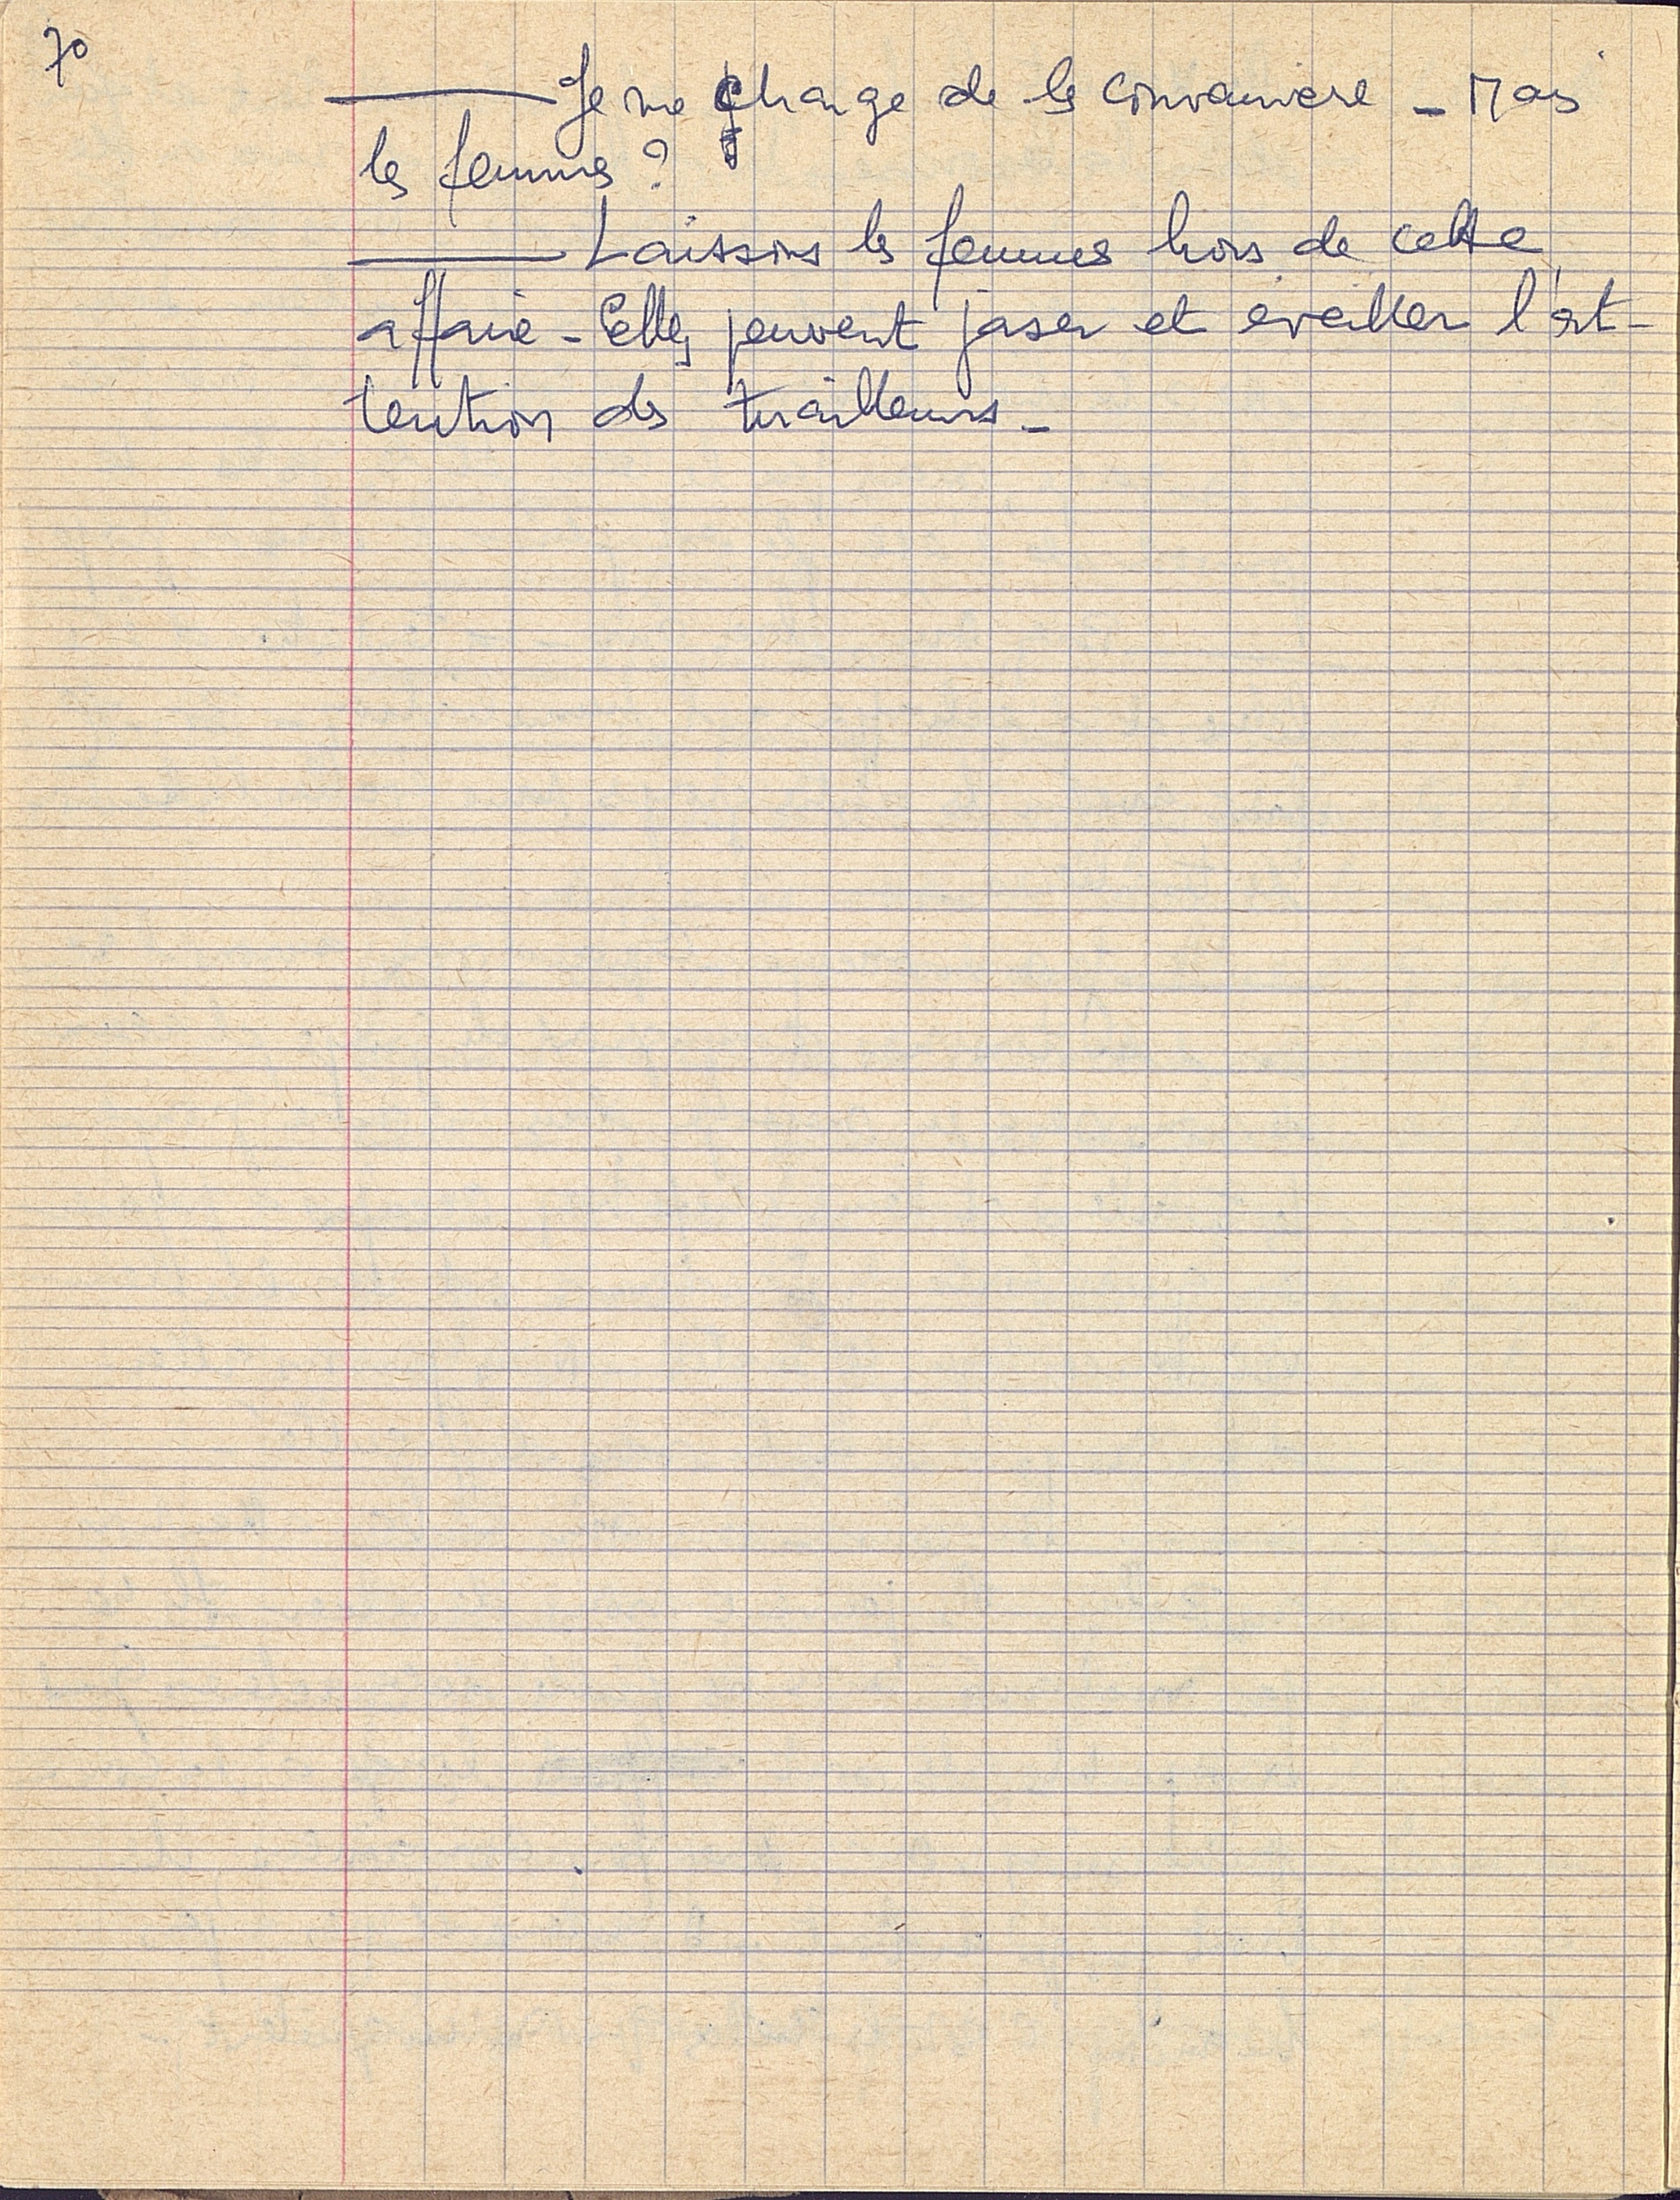 70
— Je me charge de les convaincre – Mais
les femmes ?
— Laissons les femmes hors de cette
affaire – Elles peuvent jaser et éveiller l'at-
tention des tirailleurs –